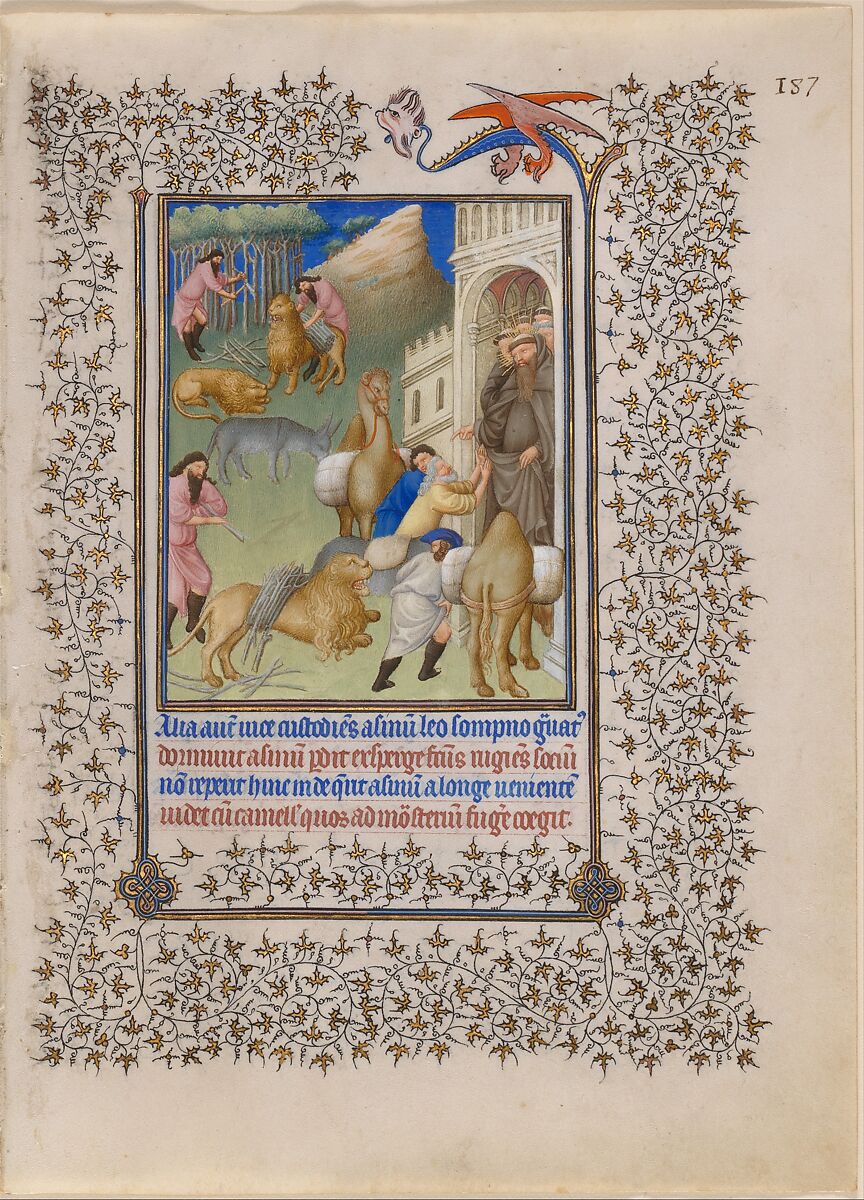 187
Alia aut̄ vice custodiēs asinū leo sompno g̃uatꝰ
dormivit asinū ꝑdit exꝑgefactꝰ rugiēs sociū
nō reperit hinc inde q̄rit asinū a longe venientē
videt cū camell' quos ad mōsteriū fug̃e coegit.